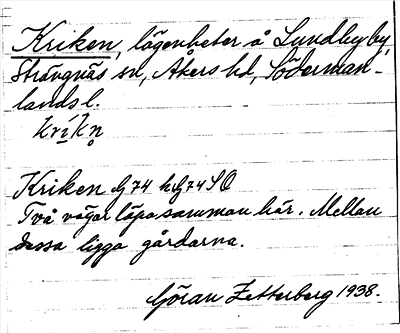 Kriken, lägenheter å Lundby by,
Strängnäs sn, Åkers hd, Söderman-
lands l.
kríkn̥
Kriken G 74 h. G 74 S Ö
Två vägar löpa samman här. Mellan
dessa ligga gårdarna.
Göran Zetterberg 1938.